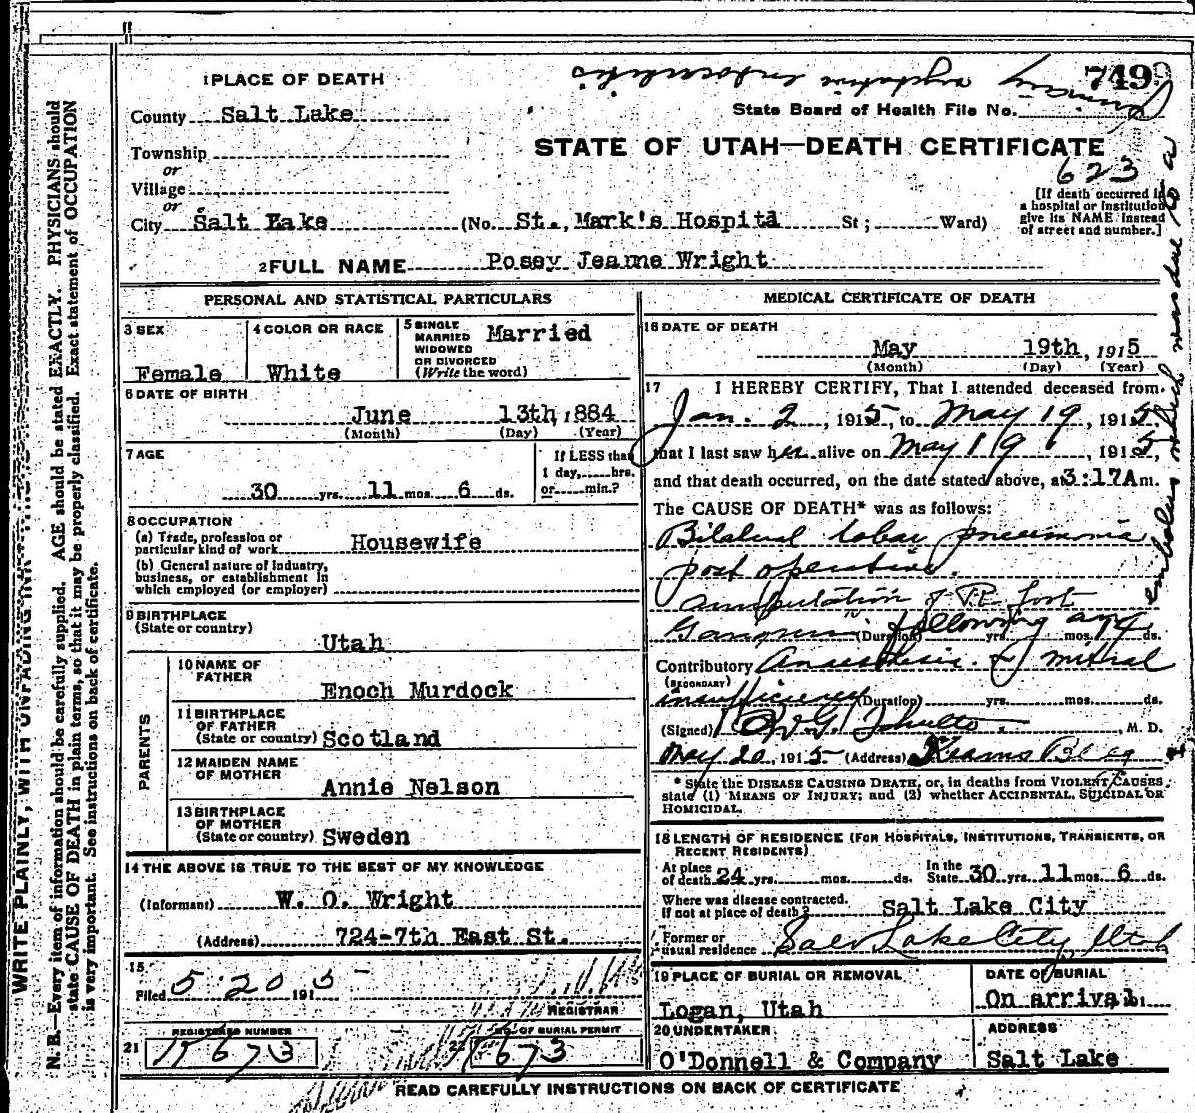 7499
1 PLACE OF DEATH
County Salt Lake
State Board of Health File No.
Township
or
Village
or
City Salt Eake (No. St., Mark's Hospitá St; Ward)
STATE OF UTAH—DEATH CERTIFICATE
623
[If death occurred in a hospital or institution give its NAME instead of street and number.]
2 FULL NAME Posey Jeanne Wright
PERSONAL AND STATISTICAL PARTICULARS
3 SEX
Female
4 COLOR OR RACE
White
5 SINGLE
MARRIED
WIDOWED
OR DIVORCED
(Write the word)
Married
6 DATE OF BIRTH
June 13th, 1884
(Month) (Day) (Year)
7 AGE
30 yrs. 11 mos. 6 ds.
If LESS than
1 day, hrs.
or min.?
8 OCCUPATION
(a) Trade, profession or
particular kind of work Housewife
(b) General nature of industry,
business, or establishment in
which employed (or employer)
9 BIRTHPLACE
(State or country)
Utah
PARENTS
10 NAME OF
FATHER
Enoch Murdock
11 BIRTHPLACE
OF FATHER
(State or country) Scotland
12 MAIDEN NAME
OF MOTHER
Annie Nelson
13 BIRTHPLACE
OF MOTHER
(State or country) Sweden
14 THE ABOVE IS TRUE TO THE BEST OF MY KNOWLEDGE
(Informant) W. O. Wright
(Address) 724-7th East St.
15
Filed 5 20 1915
REGISTRAR
REGISTERED NUMBER
21
NO. OF BURIAL PERMIT
22 673
MEDICAL CERTIFICATE OF DEATH
16 DATE OF DEATH
May 19th, 1915
(Month) (Day) (Year)
17 I HEREBY CERTIFY, That I attended deceased from
Jan. 2, 1915, to May 19, 1915,
that I last saw her alive on May 19, 1915,
and that death occurred, on the date stated above, at 3:17A m.
The CAUSE OF DEATH* was as follows:
Bilateral lobar pneumonia
post operative.
Amputation of foot
Gangrene following
(Duration) yrs. mos. ds.
Contributory Anaesthesia. & mitral
(SECONDARY)
insufficiency (Duration) yrs. mos. ds.
(Signed) M. D.
May 20, 1915 (Address) Kearns Bldg
* State the DISEASE CAUSING DEATH, or, in deaths from VIOLENT CAUSES,
state (1) MEANS OF INJURY; and (2) whether ACCIDENTAL, SUICIDAL OR
HOMICIDAL.
embolus which was due to a
Primary vegetative endocarditis
18 LENGTH OF RESIDENCE (FOR HOSPITALS, INSTITUTIONS, TRANSIENTS, OR
RECENT RESIDENTS)
At place
of death 24 yrs. mos. ds.
In the
State 30 yrs. 11 mos. 6 ds.
Where was disease contracted,
if not at place of death? Salt Lake City
Former or
usual residence Salt Lake City, Utah
19 PLACE OF BURIAL OR REMOVAL
Logan, Utah
DATE OF BURIAL
On arrival 191
20 UNDERTAKER
O'Donnell & Company
ADDRESS
Salt Lake
READ CAREFULLY INSTRUCTIONS ON BACK OF CERTIFICATE
WRITE PLAINLY, WITH UNFADING INK
N. B.—Every item of information should be carefully supplied. AGE should be stated EXACTLY. PHYSICIANS should
state CAUSE OF DEATH in plain terms, so that it may be properly classified. Exact statement of OCCUPATION
is very important. See instructions on back of certificate.